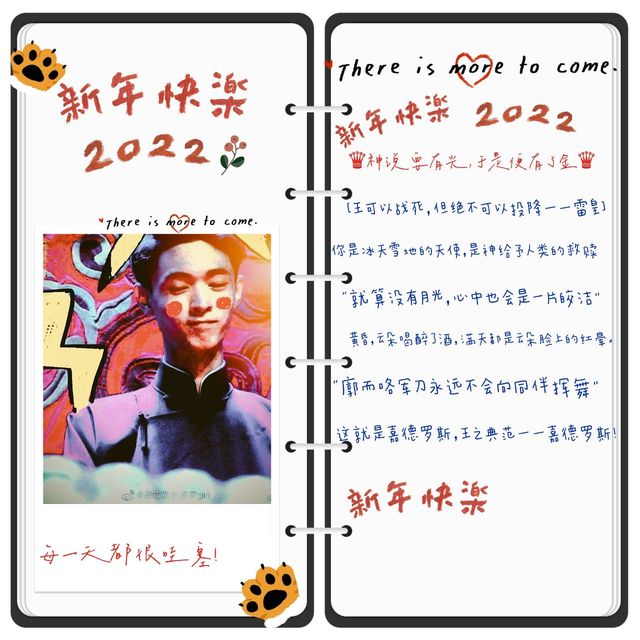 新年快樂
2022
There is more to come.
每一天都很哇塞!
There is more to come.
新年快樂 2022
神说要有光,于是便有了金
[王可以战死,但绝不可以投降一一雷皇]
你是冰天雪地的天使,是神给予人类的救赎
"就算没有月光,心中也会是一片皎洁"
黄昏,云朵喝醉了酒,满天都是云朵脸上的红晕。
"廓而咯军刀永远不会向同伴挥舞"
这就是嘉德罗斯,王之典范一一嘉德罗斯!
新年快樂